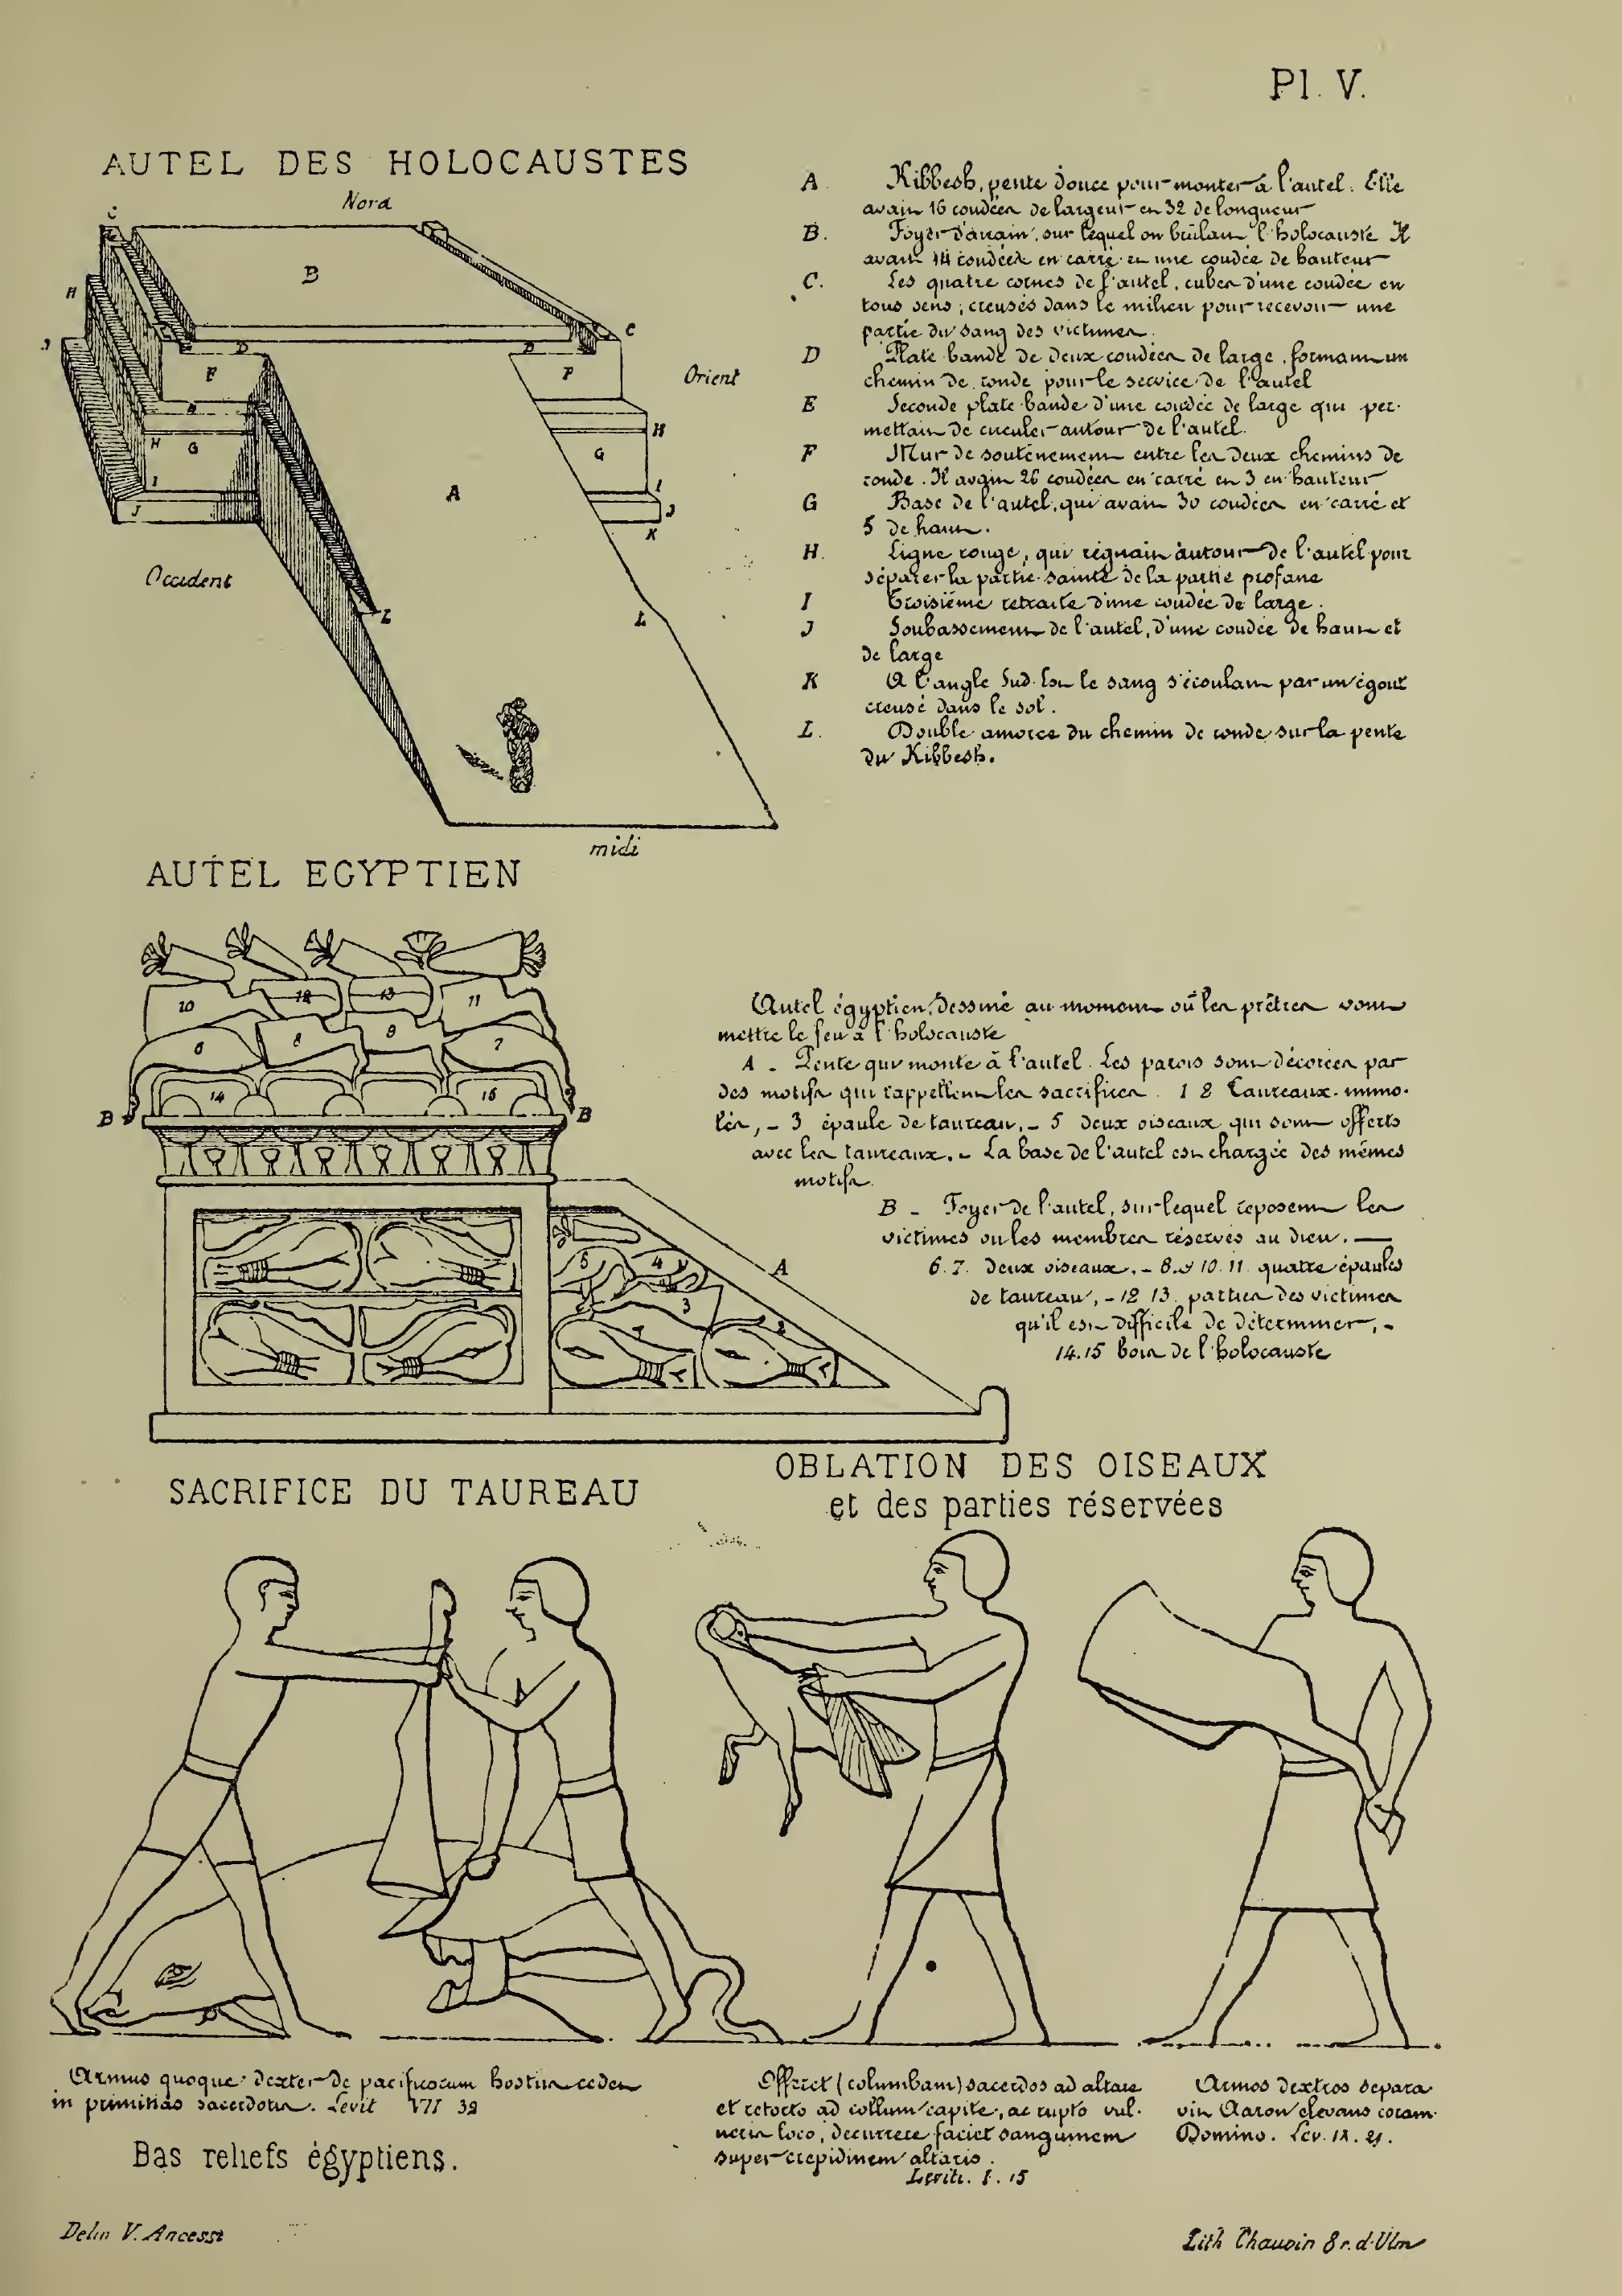 Pl. V.
AUTEL DES HOLOCAUSTES
Nord
C
B
H
J
C
D
D
F
F
Orient
H
H
H
G
G
A
I
I
J
J
K
Occident
L
L
midi
A. Kibbesh, pente douce pour monter à l'autel. Elle
avait 16 coudées de largeur et 32 de longueur
B. Foyer d'airain, sur lequel on brûlait l'holocauste Il
avait 14 coudées en carré et une coudée de hauteur
C. Les quatre cornes de l'autel, cubes d'une coudée en
tous sens, creusés dans le milieu pour recevoir une
partie du sang des victimes.
D Plate bande de deux coudées de large, formant un
chemin de ronde pour le service de l'autel
E Seconde plate bande d'une coudée de large qui per-
mettait de circuler autour de l'autel.
F Mur de soutènement entre les deux chemins de
ronde. Il avait 26 coudées en carré et 3 en hauteur
G Base de l'autel, qui avait 30 coudées en carré et
5 de haut.
H. Ligne rouge, qui régnait autour de l'autel pour
séparer la partie sainte de la partie profane
I Troisième retraite d'une coudée de large.
J Soubassement de l'autel, d'une coudée de haut et
de large
K A l'angle Sud Est le sang s'écoulait par un égout
creusé dans le sol.
L. Double amorce du chemin de ronde sur la pente
du Kibbesh.
AUTEL EGYPTIEN
10
12
13
11
6
8
9
7
14
15
B
B
5
4
A
3
1
2
Autel égyptien, dessiné au moment où les prêtres vont
mettre le feu à l'holocauste
A - Pente qui monte à l'autel. Les parois sont décorées par
des motifs qui rappellent les sacrifices. 1 2 Taureaux immo-
lés, - 3 épaule de taureau, - 5 deux oiseaux qui sont offerts
avec les taureaux. - La base de l'autel est chargée des mêmes
motifs.
B - Foyer de l'autel, sur lequel reposent les
victimes ou les membres réservés au dieu. —
6. 7. deux oiseaux, - 8. 9 10. 11. quatre épaules
de taureau, - 12 13. parties des victimes
qu'il est difficile de déterminer, -
14. 15 bois de l'holocauste
SACRIFICE DU TAUREAU
OBLATION DES OISEAUX
et des parties réservées
Armus quoque dexter de pacificorum hostiis cedet
in primitias sacerdotis. Levit VII 32
Bas reliefs égyptiens.
Offeret (columbam) sacerdos ad altare
et retorto ad collum capite, ac rupto vul-
neris loco, decurrere faciet sanguinem
super crepidinem altaris.
Levit. I. 15
Armos dextros separa
vit Aaron elevans coram
Domino. Lev. IX. 21.
Delin V. Ancessi
Lith Chauvin 8 r. d'Ulm